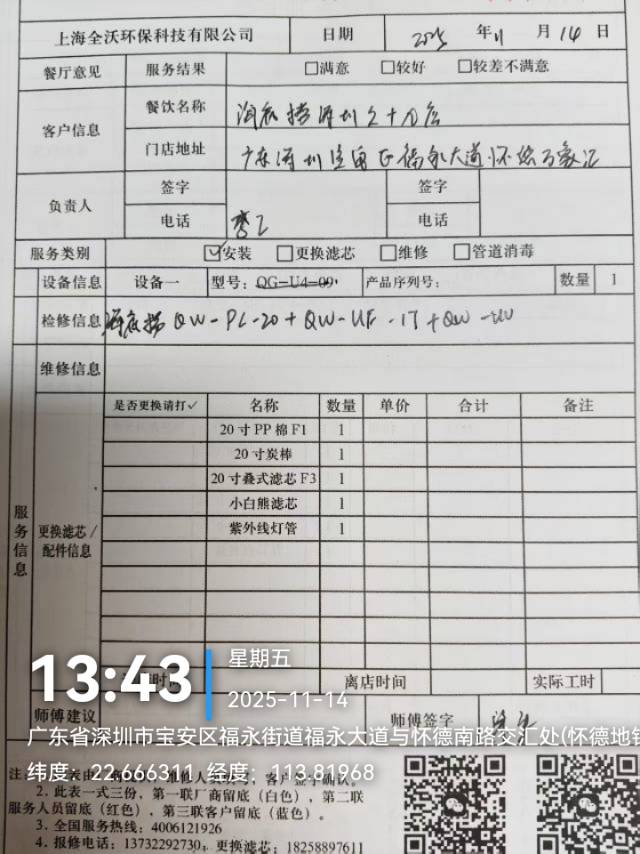 上海全沃环保科技有限公司 日期 2025 年 11 月 14 日
餐厅意见 服务结果 □满意 □较好 □较差不满意
客户信息 餐饮名称 深圳
门店地址 广东深圳宝安区福永大道怀德万象汇
负责人 签字 签字
电话 电话
服务类别 ☑安装 □更换滤芯 □维修 □管道消毒
设备信息 设备一 型号：QG-U4-09 产品序列号： 数量 1
检修信息 QW-PL-20+QW-UF-1T+QW
维修信息
是否更换请打✓ 名称 数量 单价 合计 备注
20寸PP棉F1 1
20寸炭棒 1
服务信息 更换滤芯/配件信息
20寸叠式滤芯F3 1
小白熊滤芯 1
紫外线灯管 1
离店时间 实际工时
师傅建议 师傅签字
13:43
星期五
2025-11-14
广东省深圳市宝安区福永街道福永大道与怀德南路交汇处(怀德地铁
纬度：22.666311 经度：113.81968
2. 此表一式三份，第一联厂商留底（白色），第二联
服务人员留底（红色），第三联客户留底（蓝色）。
3. 全国服务热线：4006121926
4. 报修电话：13732292730，更换滤芯：18258897611